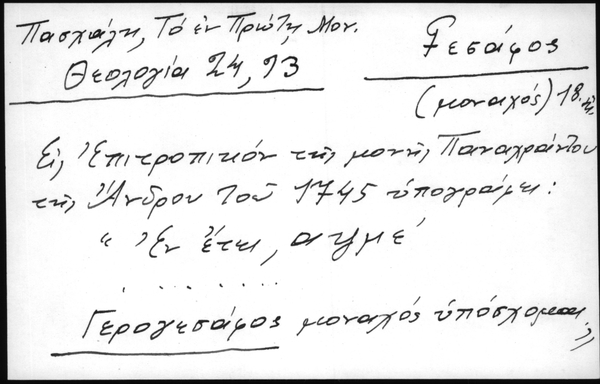 Πασχάλη, Τό ἐν Πρώτῃ Μον.
Θεολογία 24, 93
Γεσάφος
(μοναχός) 18.
Εἰς Ἐπιτροπικόν τῆς μονῆς Παναχράντου
τῆς Ἄνδρου τοῦ 1745 ὑπογράφει:
“ Ἐν ἔτει, αψμε´
. . . . . . . . .
Γερογεσάφος μοναχός ὑπόσχομαι „